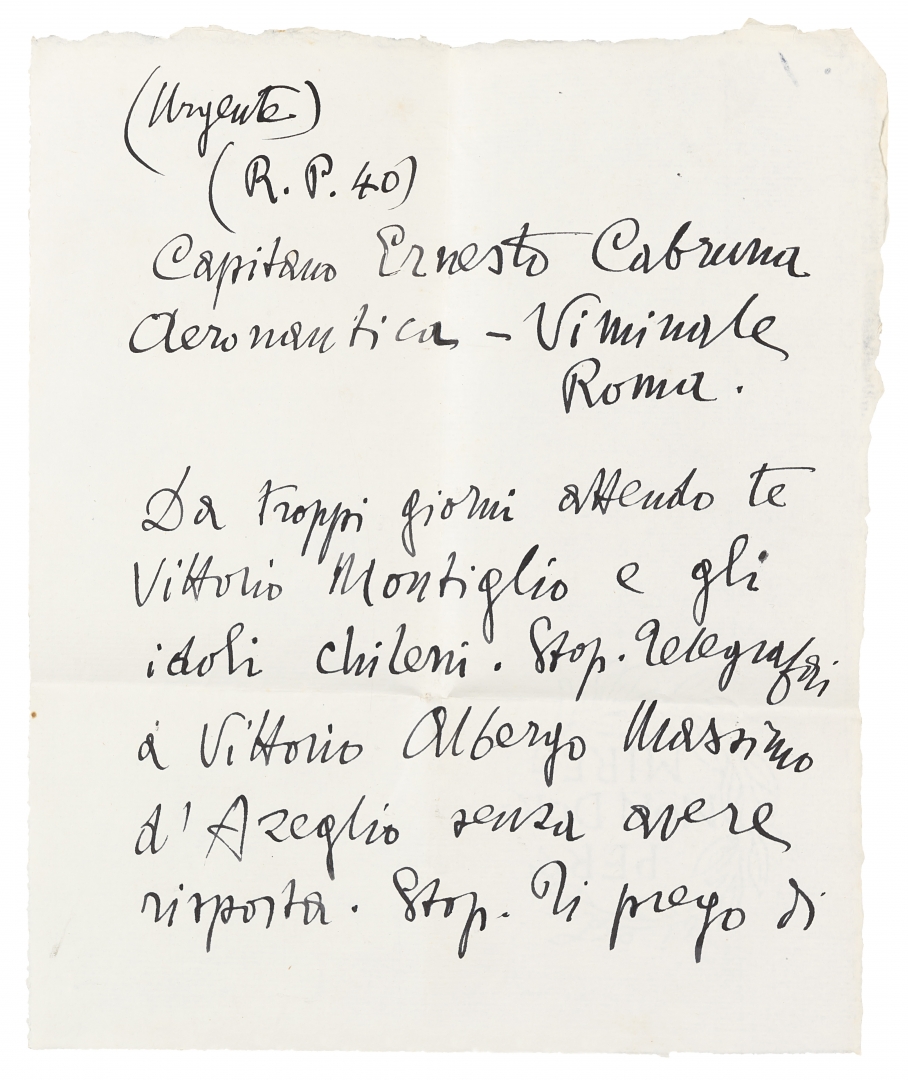 (Urgente)
(R. P. 40)
Capitano Ernesto Cabruna
Aeronautica - Viminale
Roma.
Da troppi giorni attendo te
Vittorio Montiglio e gli
idoli chileni. Stop. Telegrafai
a Vittorio Albergo Massimo
d'Azeglio senza avere
risposta. Stop. Ti prego di